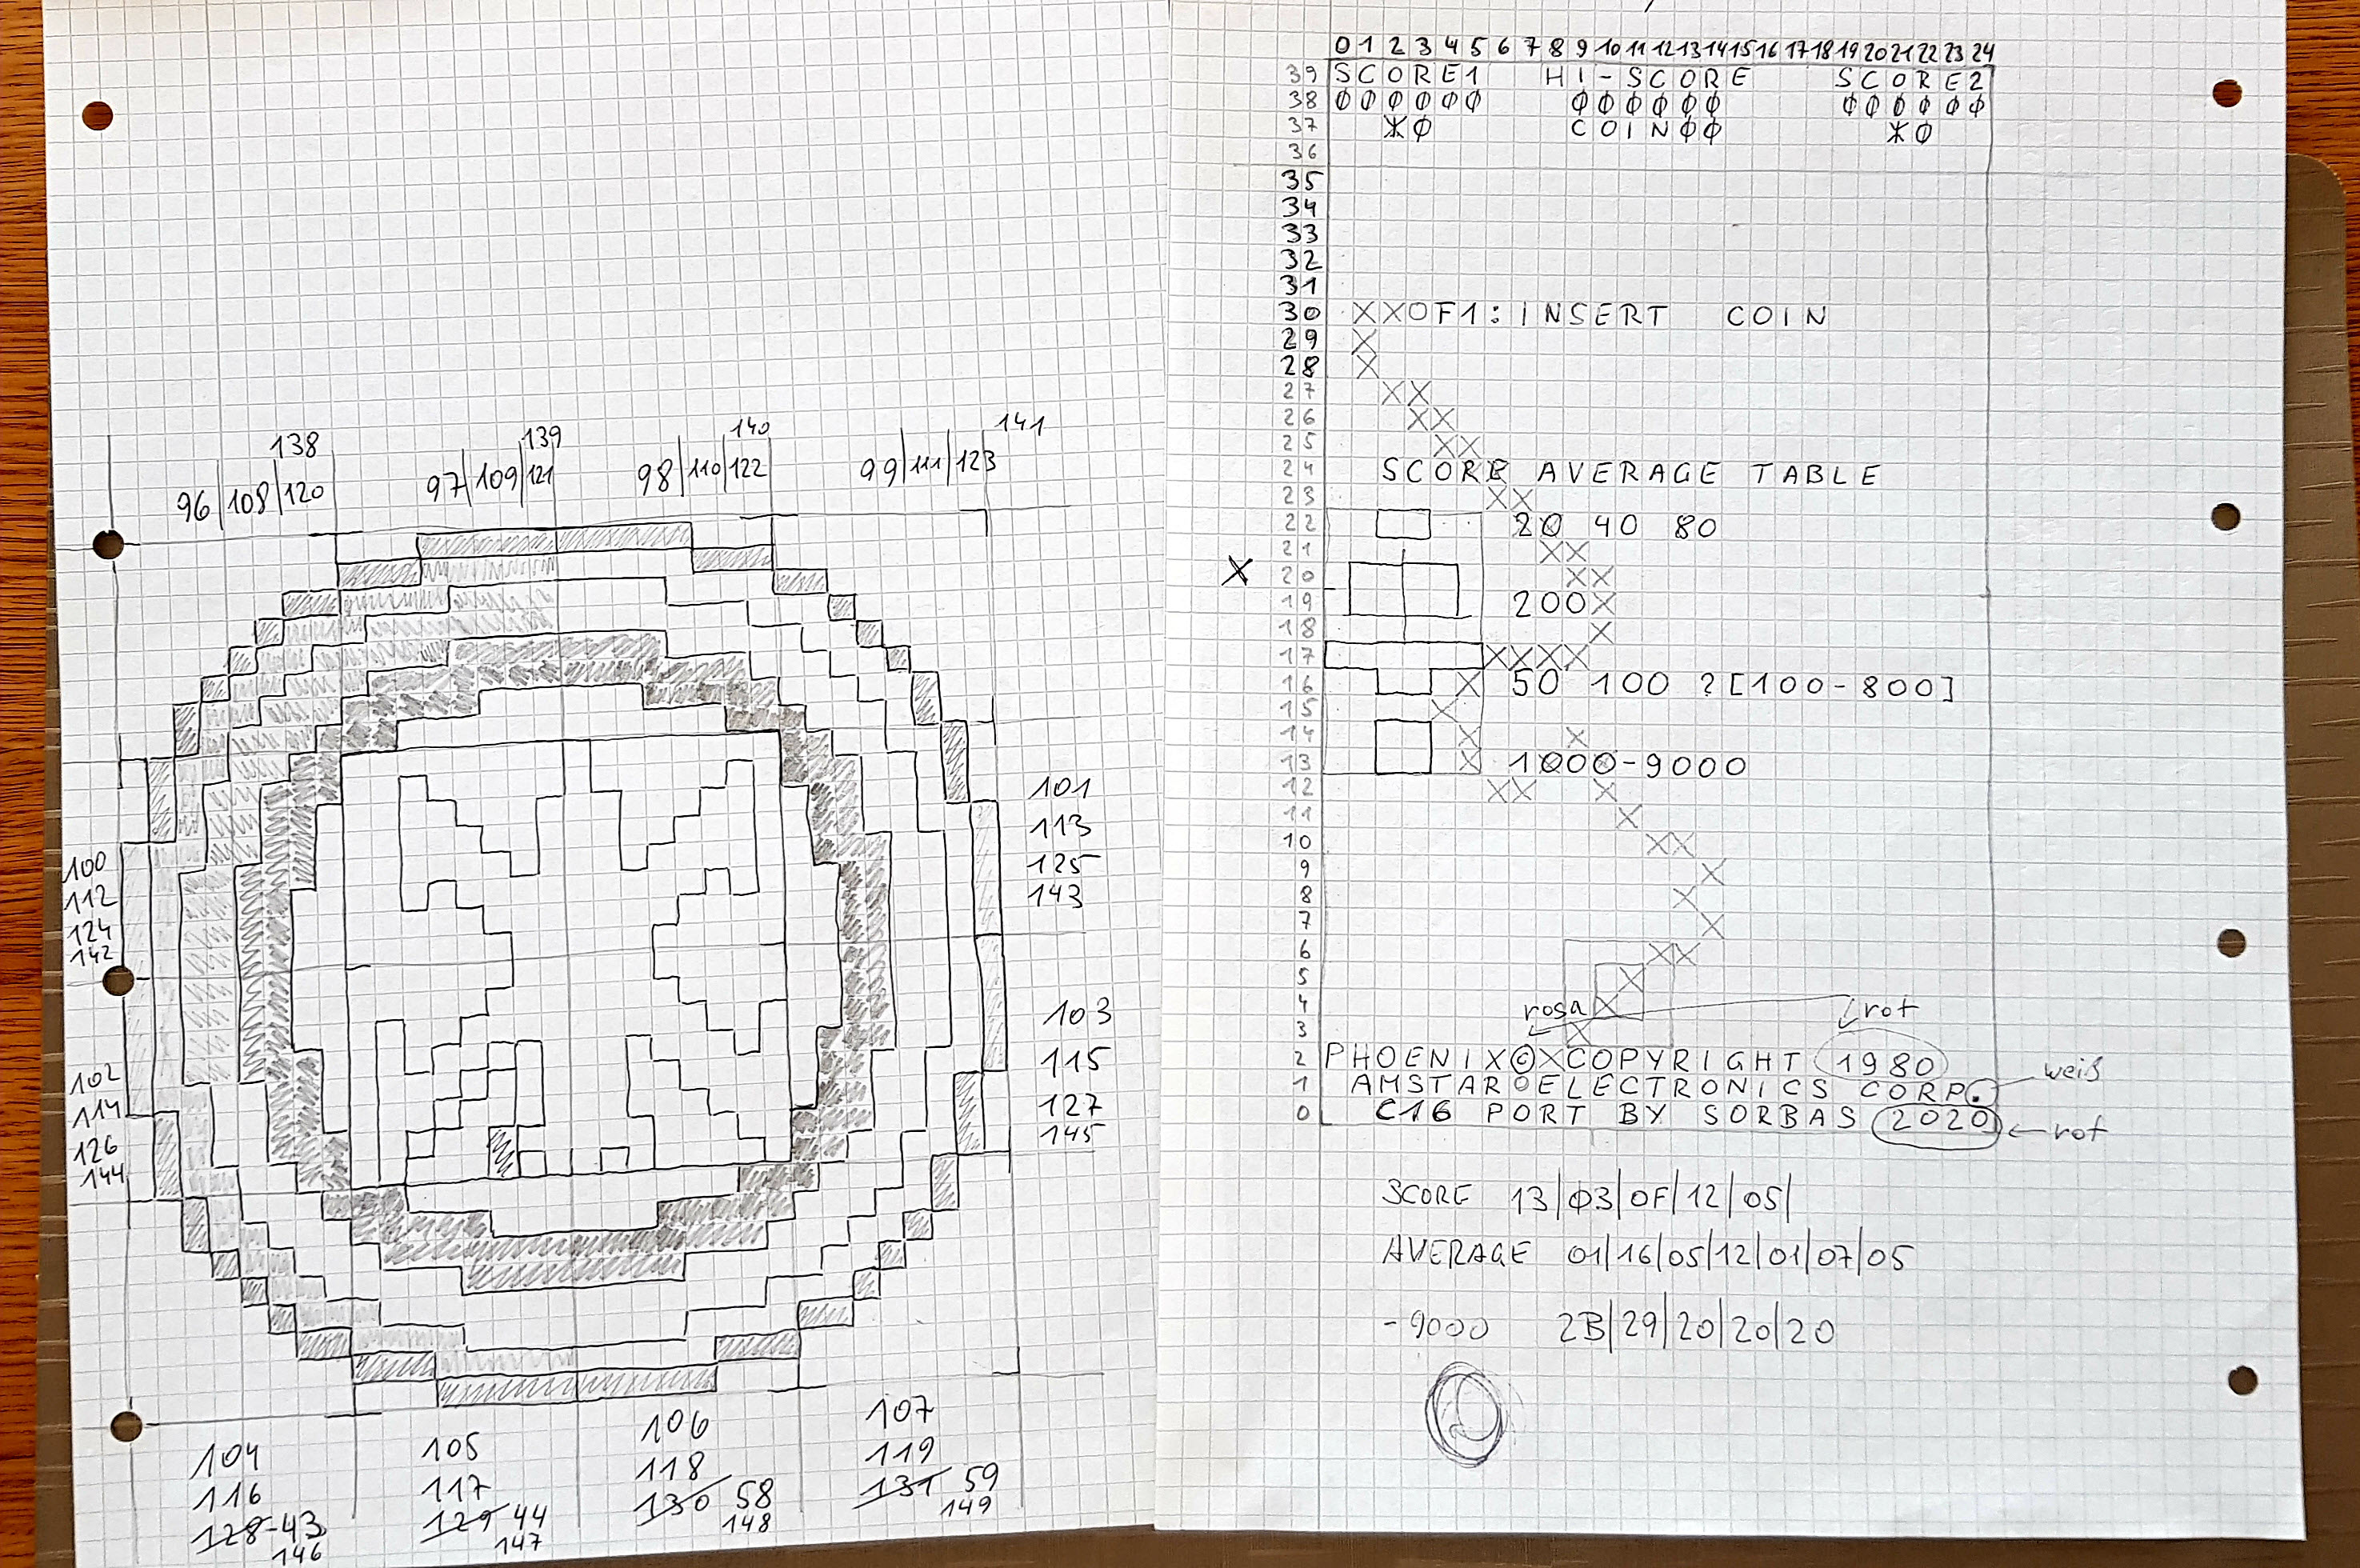 138 139 140 141
96 | 108 | 120 97 | 109 | 121 98 | 110 | 122 99 | 111 | 123
100
112
124
142
101
113
125
143
102
114
126
144
103
115
127
145
104
116
128-43
146
105
117
129 44
147
106
118
130 58
148
107
119
131 59
149
0 1 2 3 4 5 6 7 8 9 10 11 12 13 14 15 16 17 18 19 20 21 22 23 24
39 SCORE1 HI-SCORE SCORE2
38 000000 000000 000000
37 Ж0 COIN00 Ж0
36
35
34
33
32
31
30 XXOF1: INSERT COIN
29 X
28 X
27 XX
26 XX
25 XX
24 SCORE AVERAGE TABLE
23 XX
22 20 40 80
21 XX
X 20 XX
19 200X
18 X
17 XXXX
16 X 50 100 ?[100-800]
15 X
14 X X
13 X 1000-9000
12 XX X
11 X
10 XX
9 X
8 X
7 X
6 XX
5 X
4 X
rosa rot
3 X
2 PHOENIX©XCOPYRIGHT 1980
weiß
1 AMSTAROELECTRONICS CORP.
0 C16 PORT BY SORBAS 2020
rot
SCORE 13|03|0F|12|05|
AVERAGE 01|16|05|12|01|07|05
-9000 2B|29|20|20|20